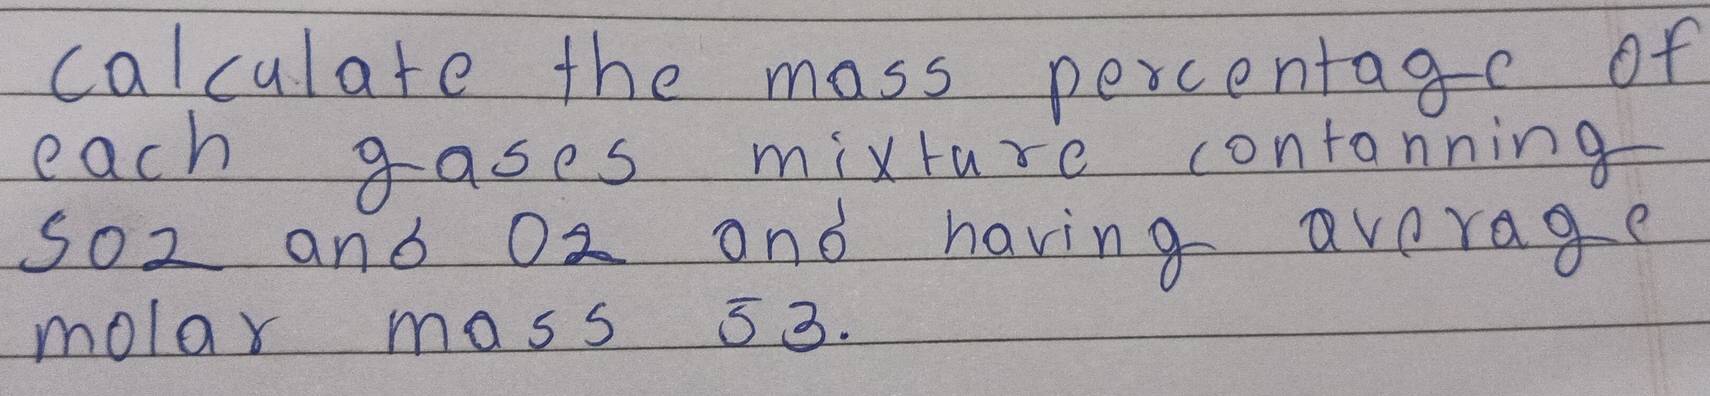 calculate the mass percentage of
each gases mixture contanning
SO2 and O2 and having average
molar mass 53.